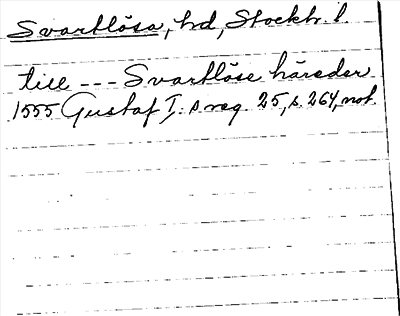 Svartlösa, hd, Stockh. l
till --- Svartlöse häreder
1555 Gustaf I:s reg. 25, s. 264, not.